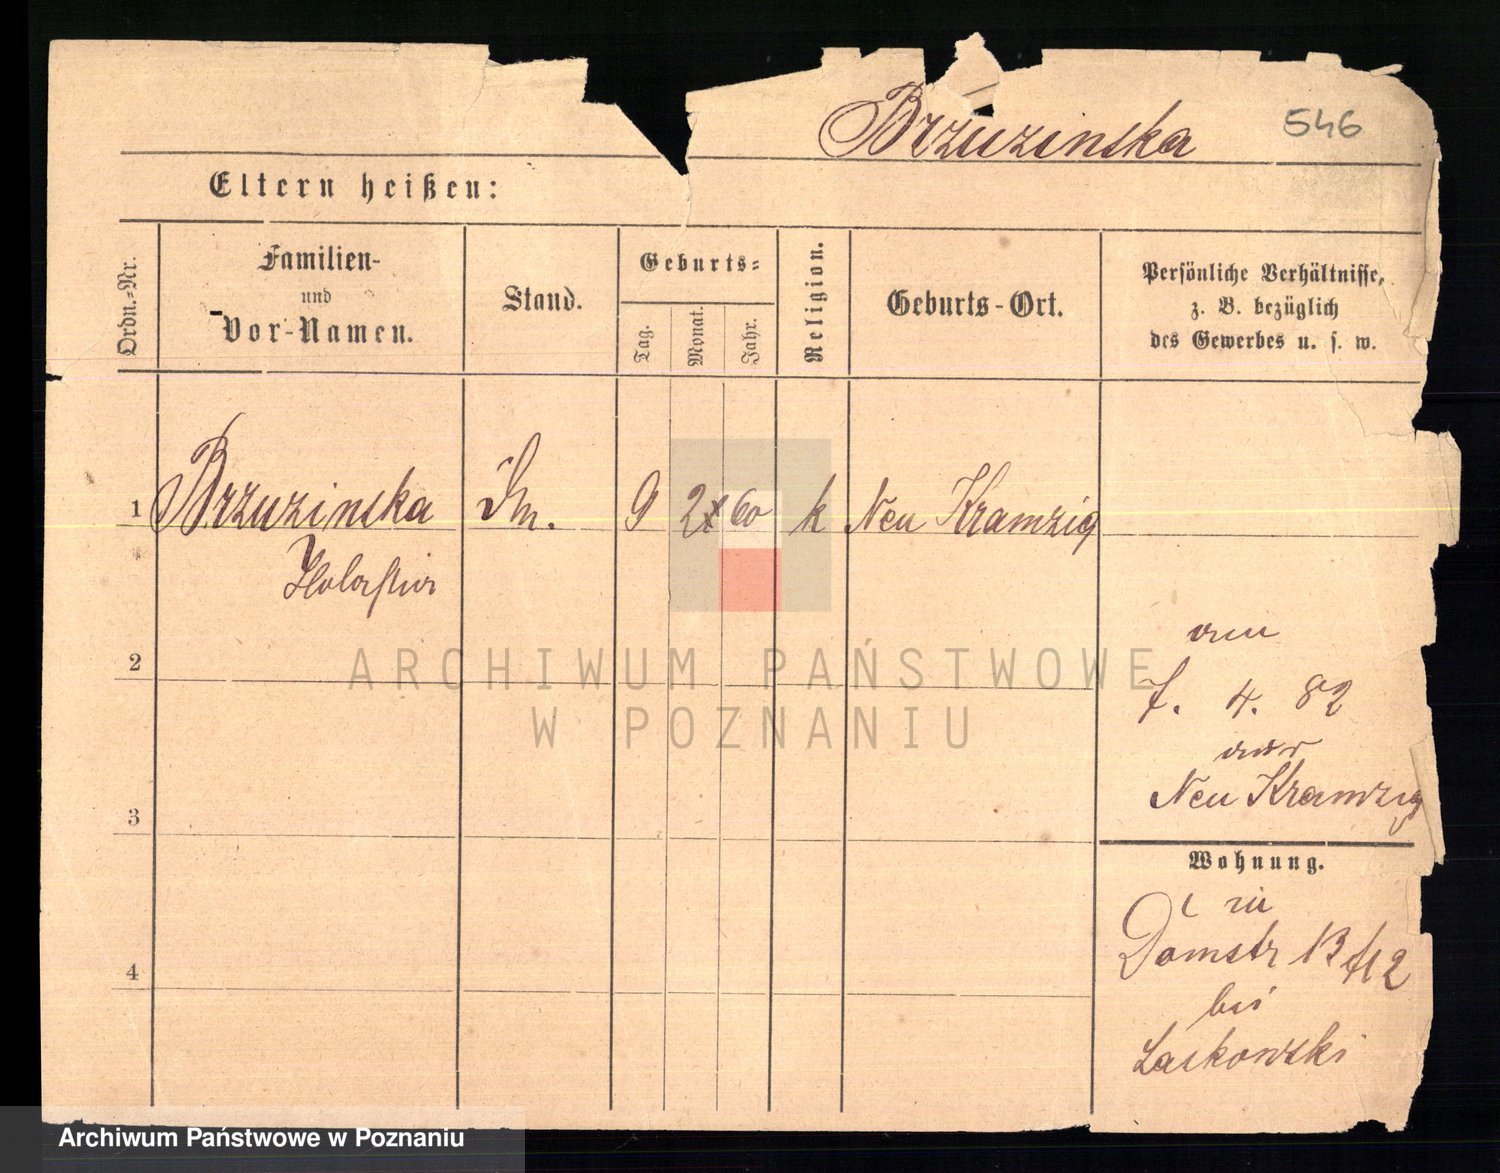 Brzuzinska
546
Eltern heißen:
Ordn.-Nr.
Familien-
und
Vor-Namen.
Stand.
Geburts-
Tag.
Monat.
Jahr.
Religion.
Geburts-Ort.
Persönliche Verhältnisse,
z. B. bezüglich
des Gewerbes u. s. w.
1 Brzuzinska 9 2 60 k Neu Kramzig
2
3
4
7. 4. 82
Neu Kramzig
Wohnung.
in
Domstr 13
bei
Laskowski
ARCHIWUM PAŃSTWOWE
W POZNANIU
Archiwum Państwowe w Poznaniu